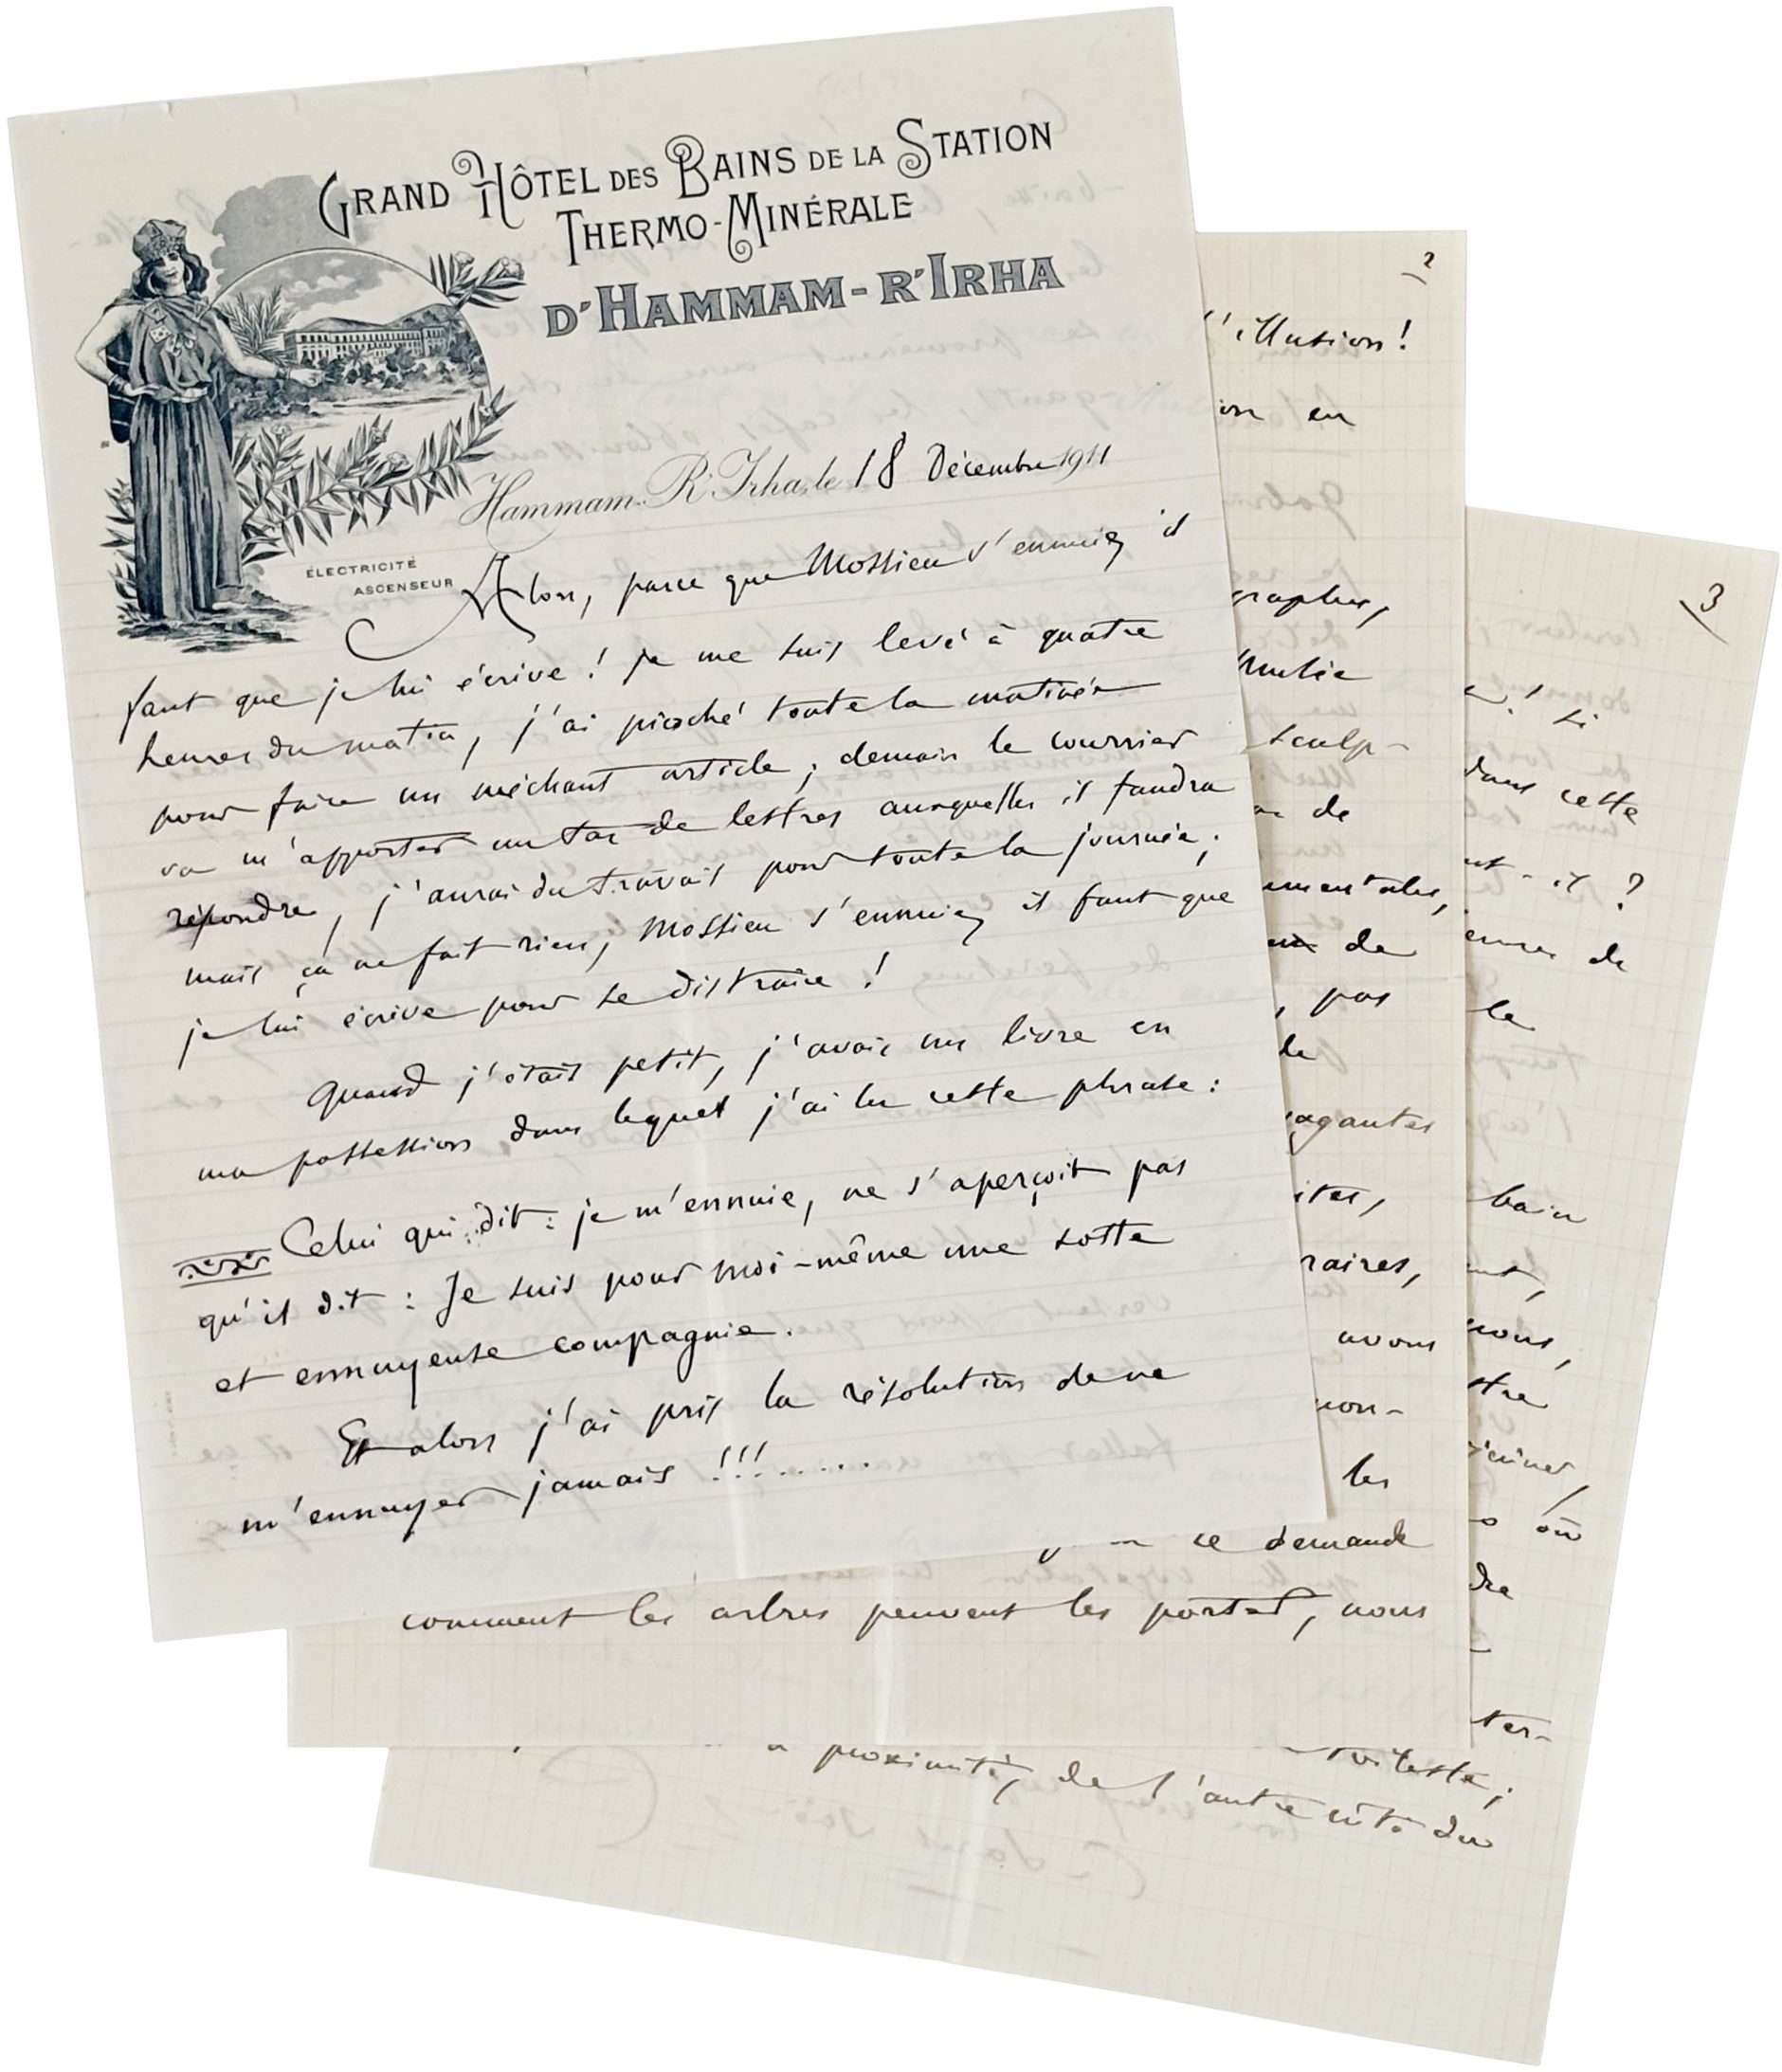 GRAND HÔTEL DES BAINS DE LA STATION
THERMO-MINÉRALE
D'HAMMAM-R'IRHA
ÉLECTRICITÉ
ASCENSEUR
Hammam-R'Irha, le 18 Décembre 1911
Alors, parce que Mossieu s'ennuie, il
faut que je lui écrive ! Je me suis levé à quatre
heures du matin, j'ai pioché toute la matinée
pour faire un méchant article ; demain le courrier
va m'apporter un tas de lettres auxquelles il faudra
répondre, j'aurai du travail pour toute la journée ;
mais ça ne fait rien, Mossieu s'ennuie, il faut que
je lui écrive pour se distraire !
Quand j'étais petit, j'avais un livre en
ma possession dans lequel j'ai lu cette phrase :
Celui qui dit : je m'ennuie, ne s'aperçoit pas
qu'il dit : Je suis pour moi-même une sotte
et ennuyeuse compagnie.
Et alors j'ai pris la résolution de ne
m'ennuyer jamais !!!........
2
l'illusion !
en
graphes,
sculp-
de
umentales,
de
, pas
de
vagantes
ites,
raires,
avons
non-
les
ce demande
comment les arbres peuvent les porter, nous
3
! si
dans cette
nt-il ?
de
le
bain
nt,
nous,
stre
où
dre
ter-
vitesse ;
à proximité, de l'autre côté du